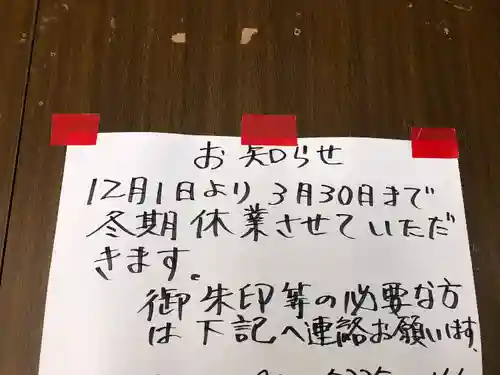 お知らせ
12月1日より3月30日まで
冬期休業させていただ
きます。
御朱印等の必要な方
は下記へ連絡お願います